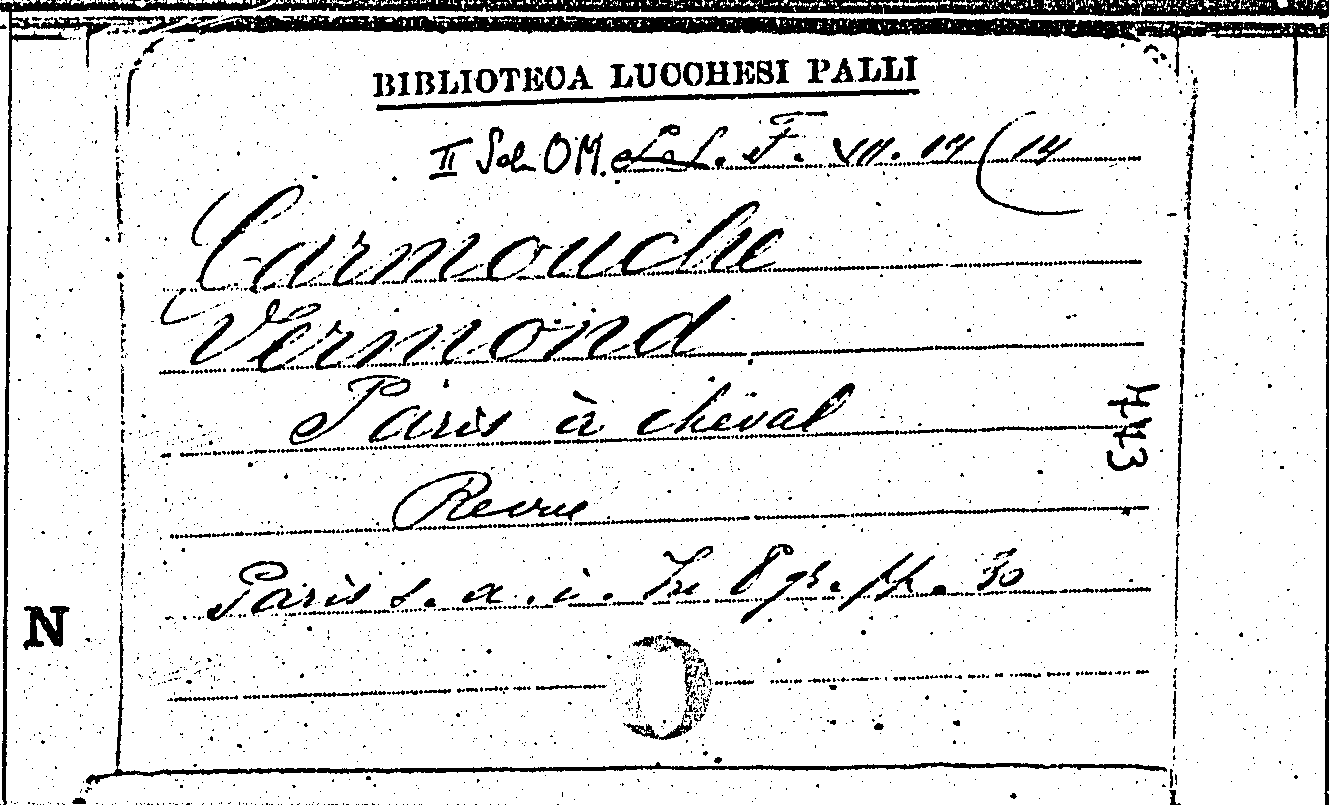 BIBLIOTECA LUCCHESI PALLI
II Sal. OM. F. VII. 14 (14
Carmouche
Vermond
Paris à cheval
Revue
Paris s. a. i. In 8 gr. pp. 30
443
N